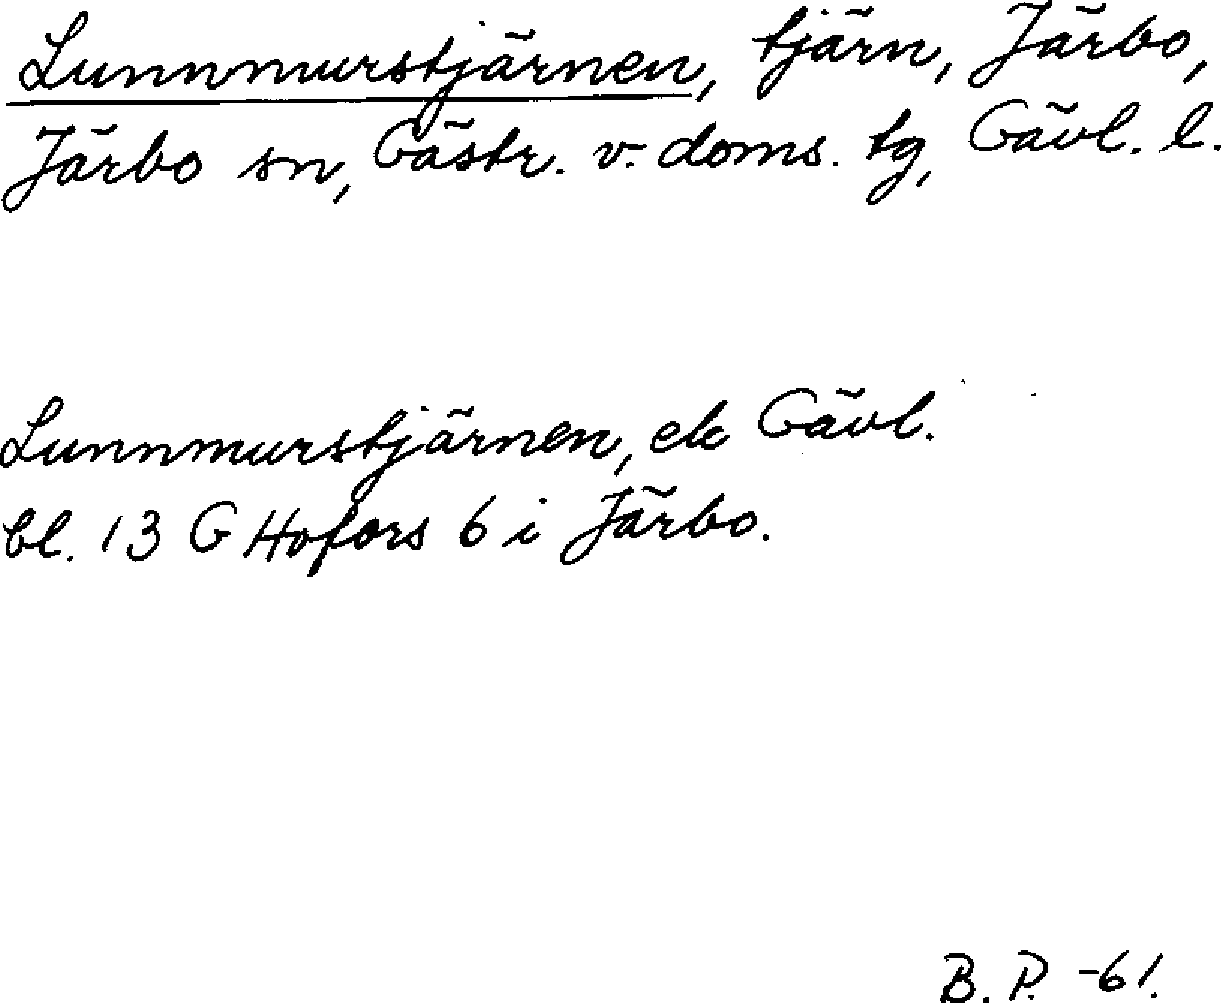 Lunnmurstjärnen, tjärn, Järbo,
Järbo sn, Gästr. v. doms. tg, Gävl. l.
Lunnmurstjärnen, ek Gävl.
bl. 13 G Hofors 6 i Järbo.
B. P. -61.